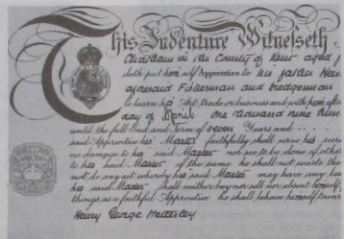 This Indenture Witnesseth
Chatham in the County of Kent aged
doth put himself Apprentice to his father
aforesaid Fisherman and Dredgerman
to learn his Art, trade or business and with him after
day of April One thousand nine
until the full End and Term of seven Years
said Apprentice his Master faithfully shall serve his
no damage to his said Master nor see to be done of other
to his said Master of the same he shall not waste the
not do any act whereby his said Master may have any
his said Master shall neither buy nor sell nor absent himself
things as a faithful Apprentice he shall behave himself
Henry George